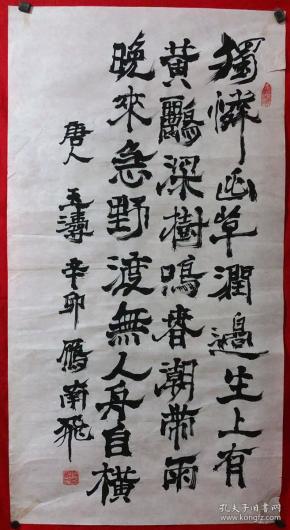 獨憐幽草澗邊生上有
黃鸝深樹鳴春潮帶雨
晚來急野渡無人舟自橫
唐人 濤 辛卯 鴈南飛
孔夫子旧书网
www.kongfz.com